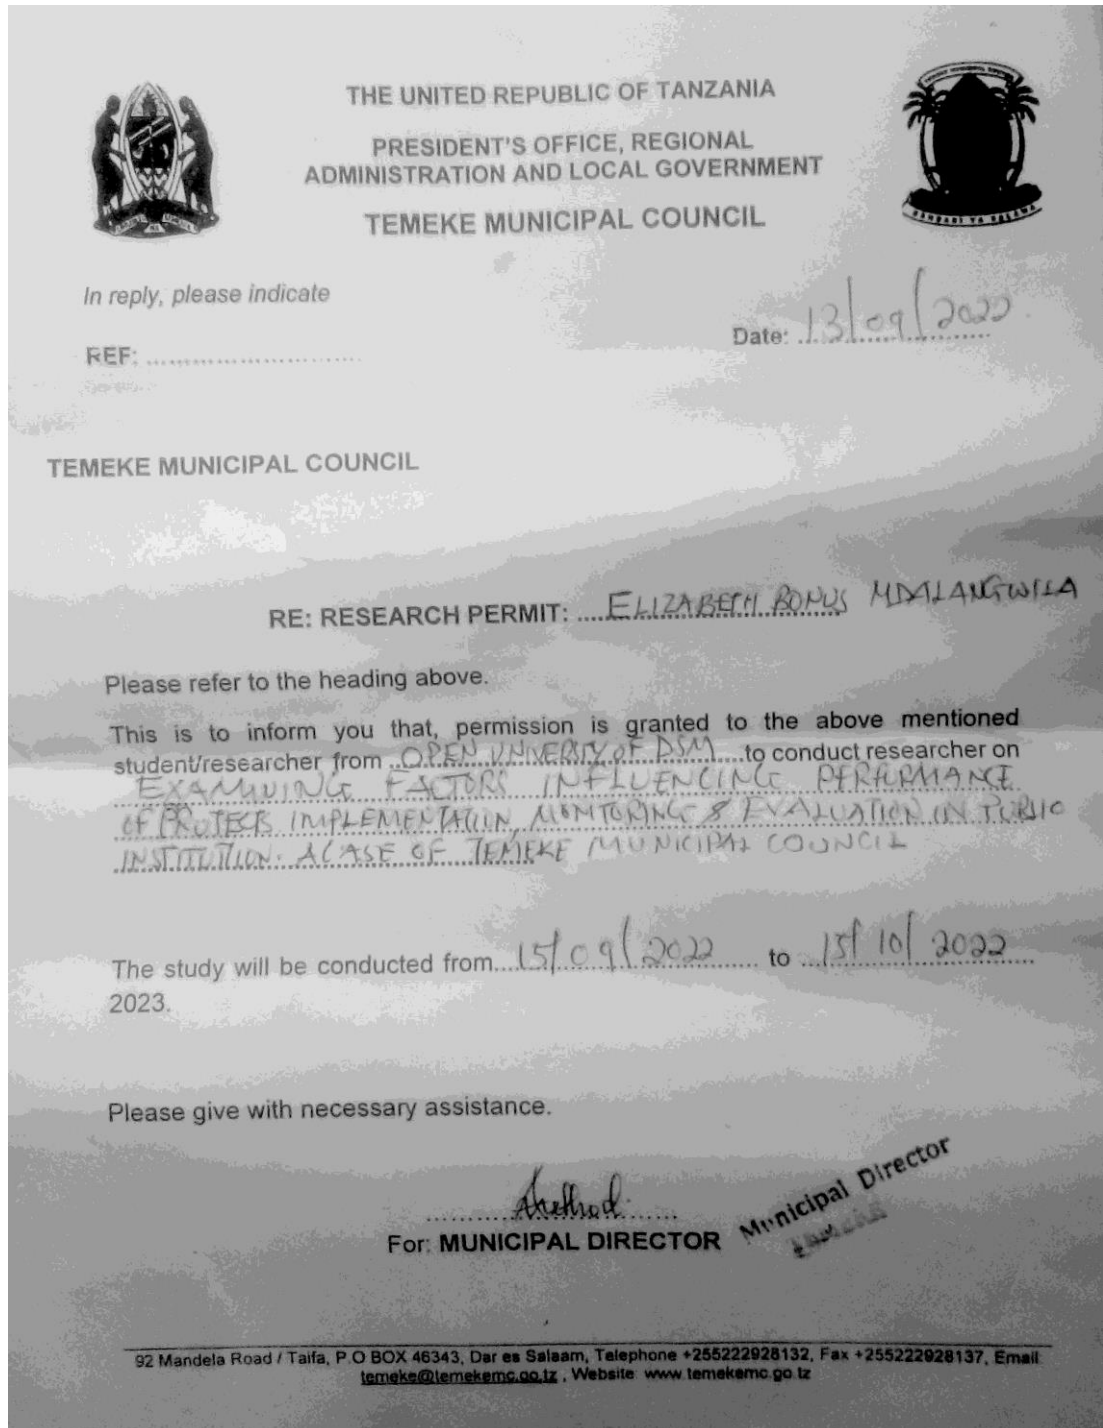 THE UNITED REPUBLIC OF TANZANIA
PRESIDENT'S OFFICE, REGIONAL
ADMINISTRATION AND LOCAL GOVERNMENT
TEMEKE MUNICIPAL COUNCIL
BANDARI YA SALAMA
In reply, please indicate
Date: 13/09/2022
REF: ..............................
TEMEKE MUNICIPAL COUNCIL
RE: RESEARCH PERMIT: ....ELIZABETH BONUS MDALANGWILA
Please refer to the heading above.
This is to inform you that, permission is granted to the above mentioned
student/researcher from ..OPEN UNIVERTY OF DSM....to conduct researcher on
EXAMINING FACTORS INFLUENCING PERFORMANCE
OF PROJECTS IMPLEMENTATION, MONITORING & EVALUATION IN PUBLIC
INSTITUTION. A CASE OF TEMEKE MUNICIPAL COUNCIL
The study will be conducted from....15/09/2022...... to ..15/10/2022..........
2023.
Please give with necessary assistance.
For: MUNICIPAL DIRECTOR
Municipal Director
TEMEKE
92 Mandela Road / Taifa, P.O BOX 46343, Dar es Salaam, Telephone +255222928132, Fax +255222928137, Email:
temeke@temekemc.go.tz , Website: www.temekemc.go.tz